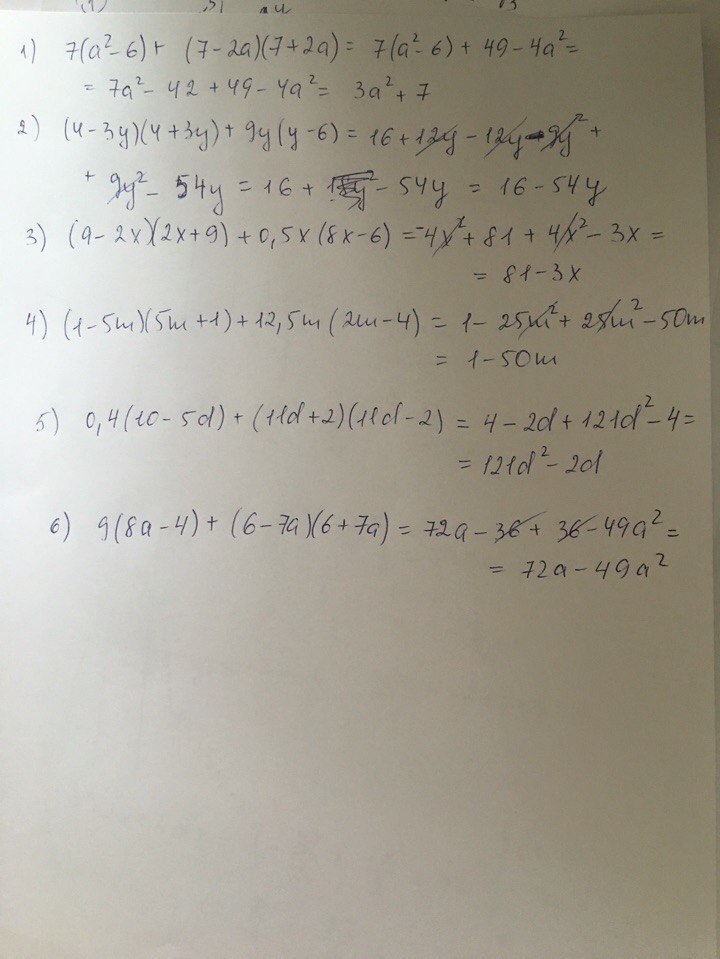 1) 7(a²-6)+ (7-2a)(7+2a)= 7(a²-6)+49-4a²=
= 7a²-42+49-4a²= 3a²+7
2) (4-3y)(4+3y)+9y(y-6)=16+12y-12y-9y²+
+ 9y²- 54y =16+ -54y = 16-54y
3) (9-2x)(2x+9)+0,5x(8x-6)=-4x²+81+4x²-3x=
= 81-3x
4) (1-5m)(5m+1)+12,5m(2m-4) = 1-25m²+25m²-50m
= 1-50m
5) 0,4(10-5d)+(11d+2)(11d-2) = 4-2d+121d²-4=
= 121d²-2d
6) 9(8a-4)+(6-7a)(6+7a)=72a-36+36-49a²=
= 72a-49a²